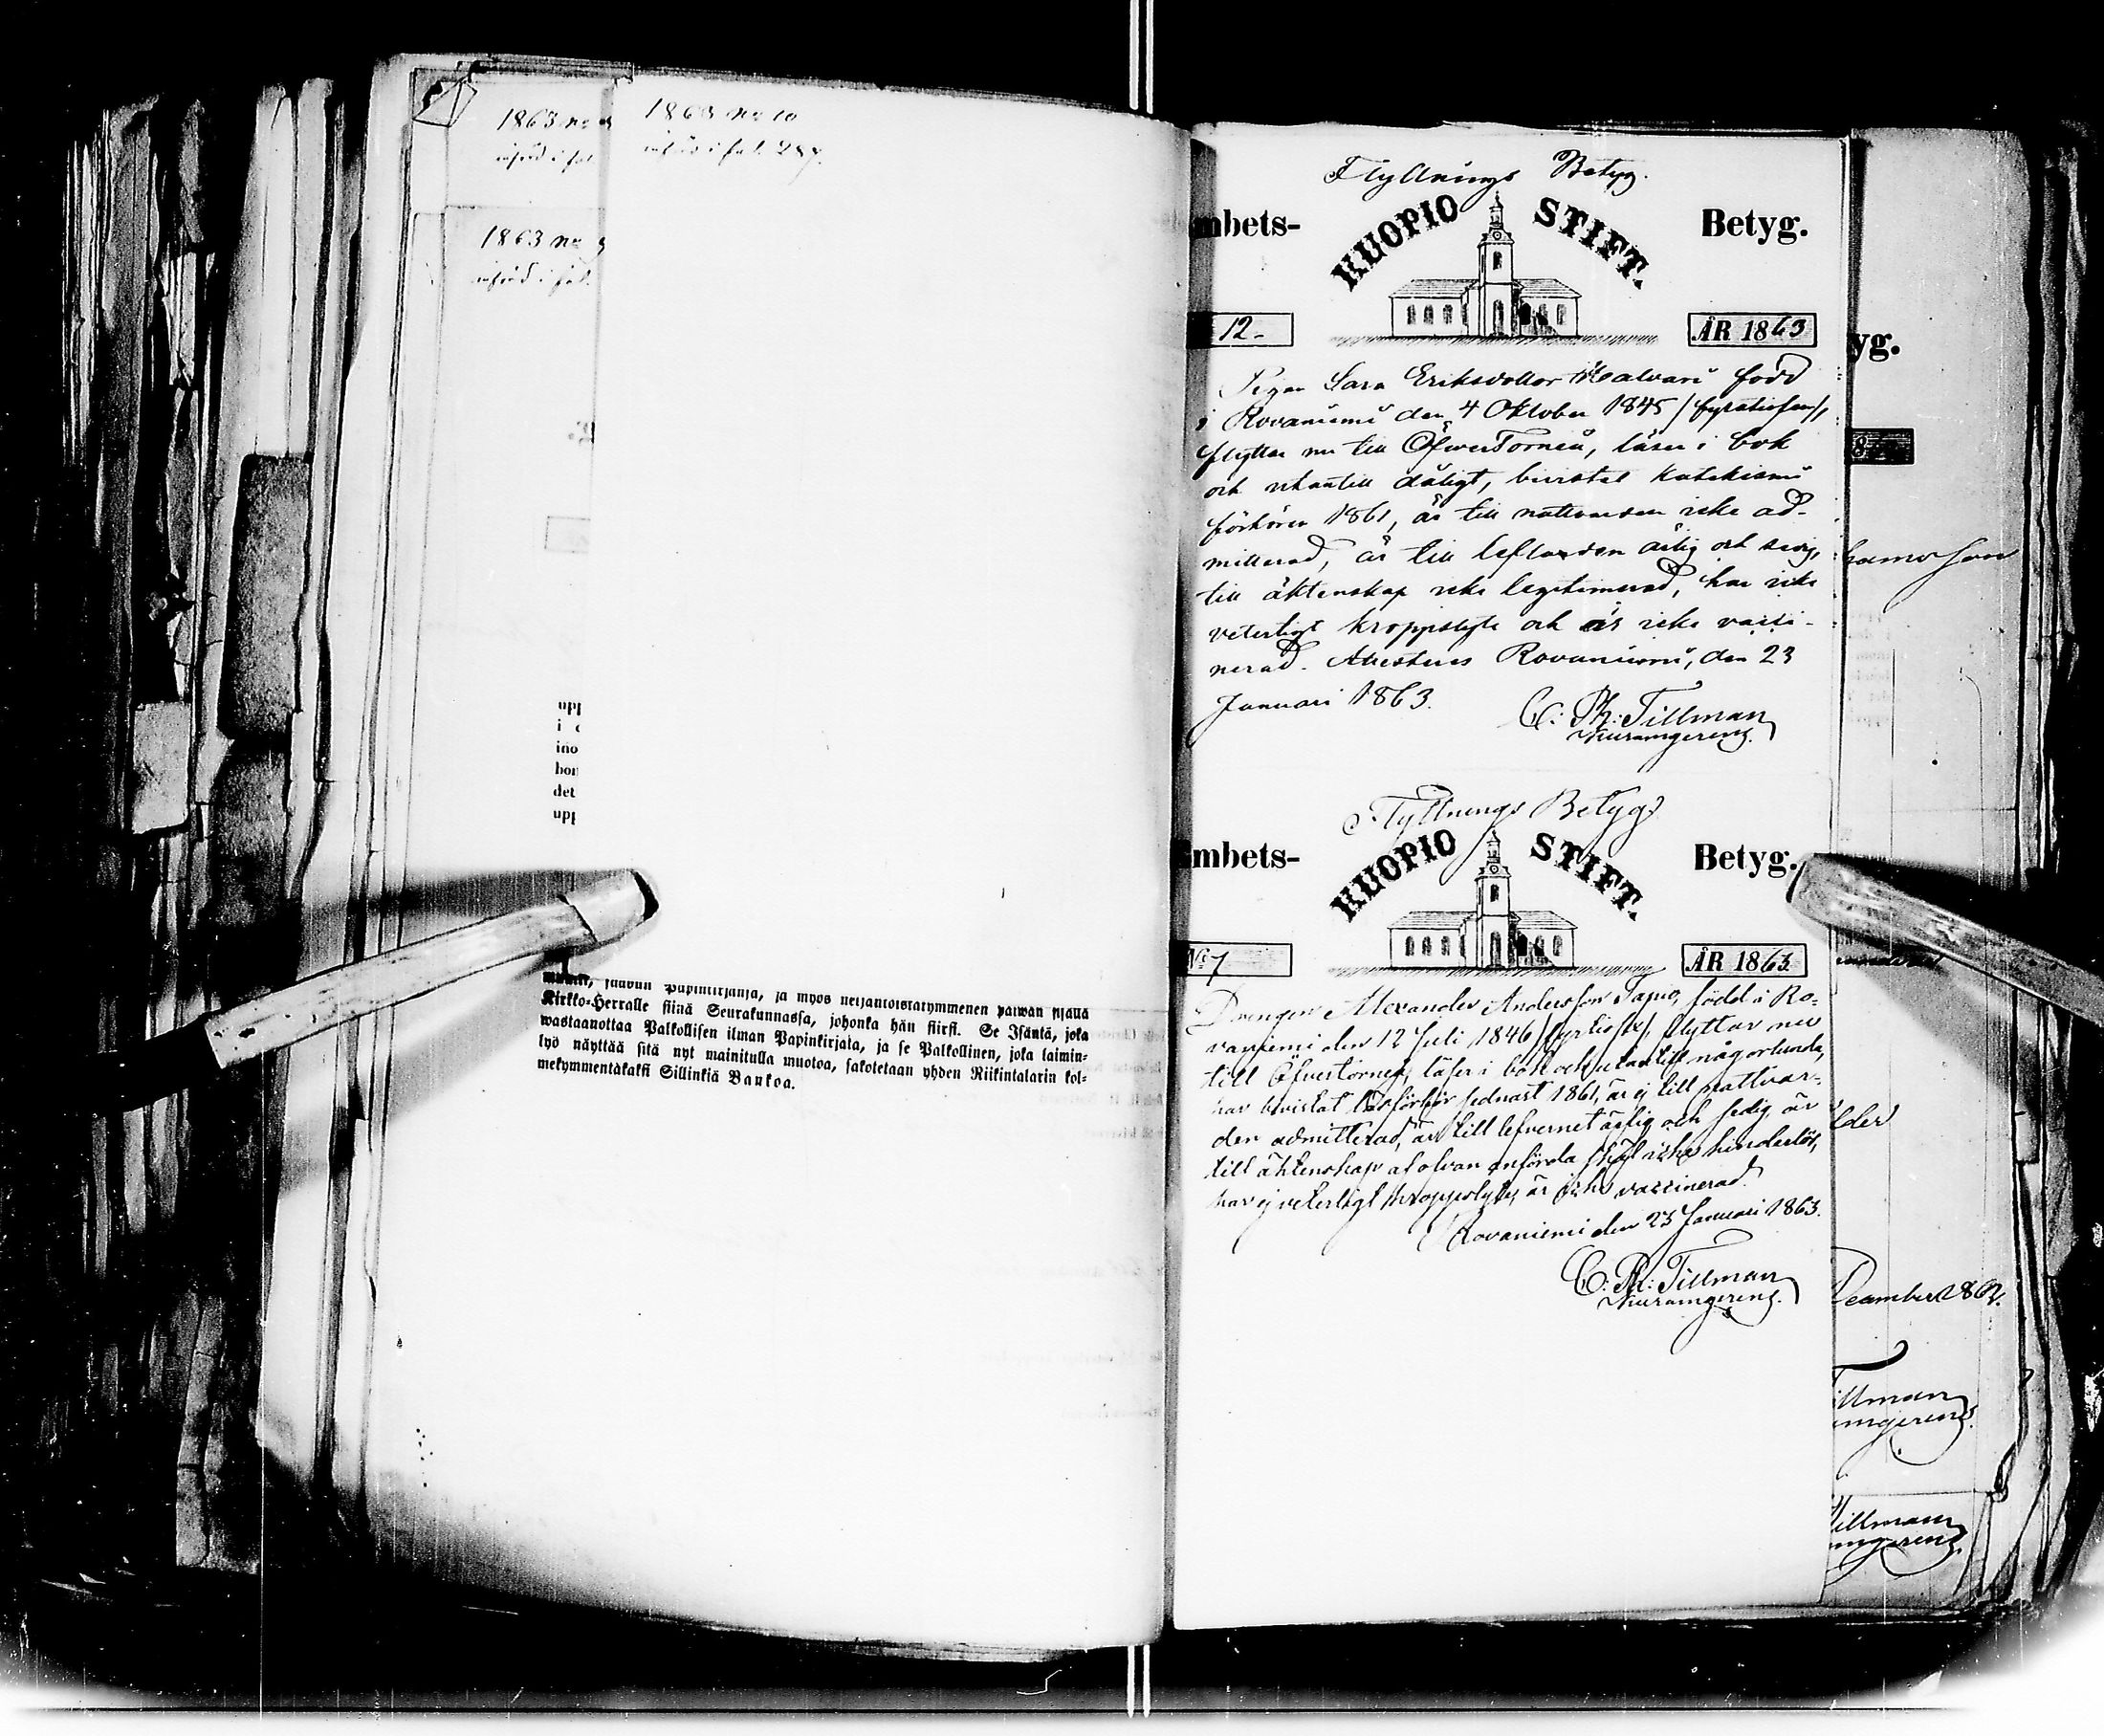 1863 no
införd i fol
1863 no 10
införd i fol. 287.
1863 no 9
införd i fol.
upp
i
ino
bor
det
upp
saavan Papinkirjansa, ja myös neljäntoistakymmenen päiwän sisällä
Kirkko-Herralle siinä Seurakunnassa, johonka hän siirsi. Se Isäntä, joka
wastaanottaa Palkollisen ilman Papinkirjata, ja se Palkollinen, joka laimin-
lyö näyttää sitä nyt mainitulla muotoa, sakotetaan yhden Riikintalarin kol-
mekymmentäkaksi Sillinkiä Bankoa.
Flyttnings Betyg.
mbets-
KUOPIO STIFT.
Betyg.
12.
ÅR 1863
Pigan Sara Eriksdotter född
i Rovaniemi den 4 Oktober 1845 / fyratiofem/,
flyttar nu till Öfvertorneå, läser i bok
och utantill dåligt, bivistat katekismi
förhören 1861, är till nattvarden icke ad-
mitterad, är till lefvarden ärlig och sedig,
till äktenskap icke legitimerad, har icke
veterligt kroppslyte och är icke vacci-
nerad. Attesteras Rovaniemi, den 23
Januari 1863.
C: Rh: Tillman
Kuramgerens.
Flyttnings Betyg
mbets-
KUOPIO STIFT.
Betyg.
No 7
ÅR 1863.
Drengen Alexander Andersson Tapio, född i Ro-
vaniemi den 12 Juli 1846 / fyrtiosex/, flyttar nu
till Öfvertorneå, läser i bok och utantill någorlunda,
har bivistat läsförhör sednast 1861, är ej till nattvar-
den admitterad, är till lefvernet ärlig och sedig, är
till äktenskap af ofvan anförda skäl icke hinderlös,
har ej veterligt kroppslyte, är icke vaccinerad.
Rovaniemi den 23 Januari 1863.
C: Rh: Tillman
Kuramgerens.
yg.
lder
December 1862.
illman
amgerens.
Tillman
amgerens.